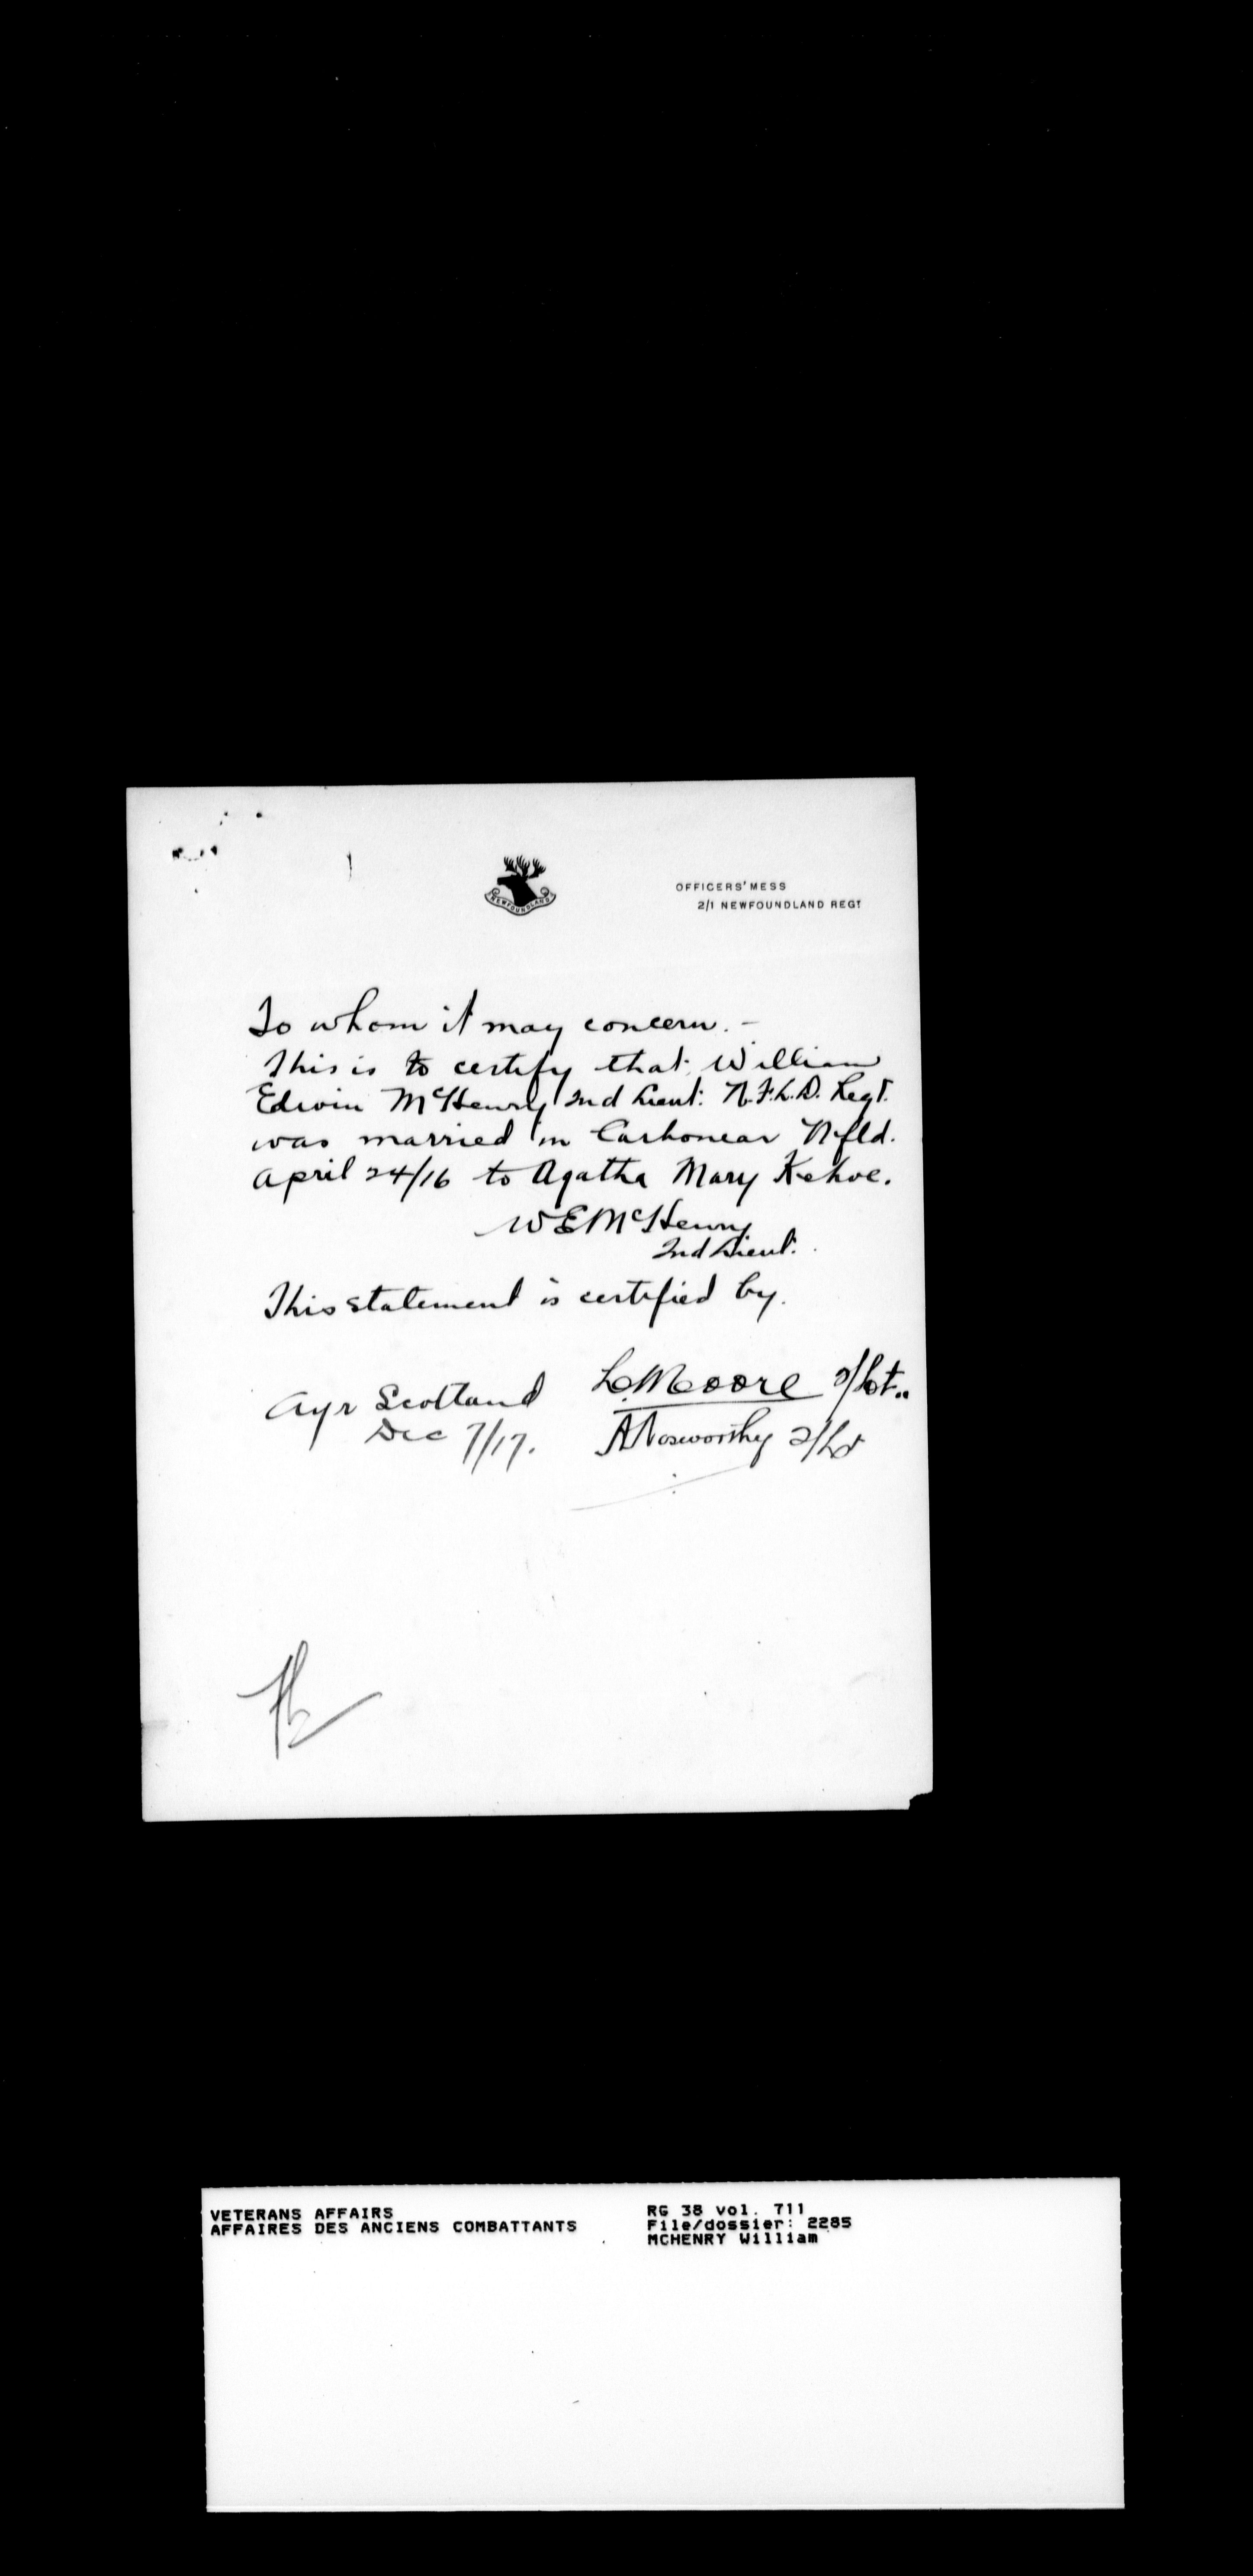 NEWFOUNDLAND
OFFICERS' MESS
2/1 NEWFOUNDLAND REGT
To whom it may concern. -
This is to certify that William
Edwin McHenry 2nd Lieut. N.F.L.D. Regt.
was married in Carbonear Nfld.
April 24/16 to Agatha Mary Kehoe.
W E McHenry
2nd Lieut.
This statement is certified by.
Ayr Scotland L. Moore 2/Lt..
Dec 7/17. A Nosworthy 2/Lt
VETERANS AFFAIRS
AFFAIRES DES ANCIENS COMBATTANTS
RG 38 vol. 711
File/dossier: 2285
MCHENRY William